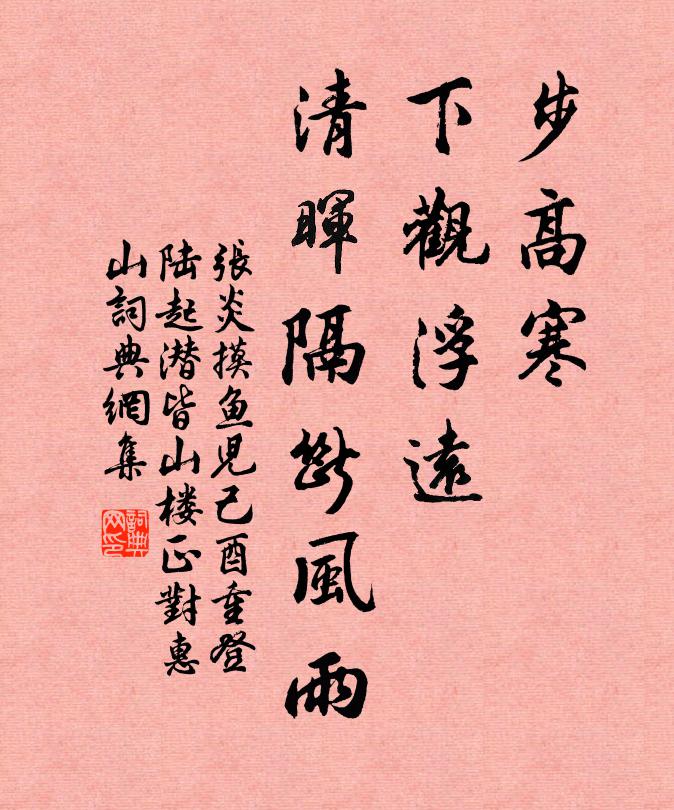 步高寒
下觀浮遠
清暉隔斷風雨
張炎摸魚児己酉重登
陆起潜皆山楼正對惠
山詞典網集
詞典网印